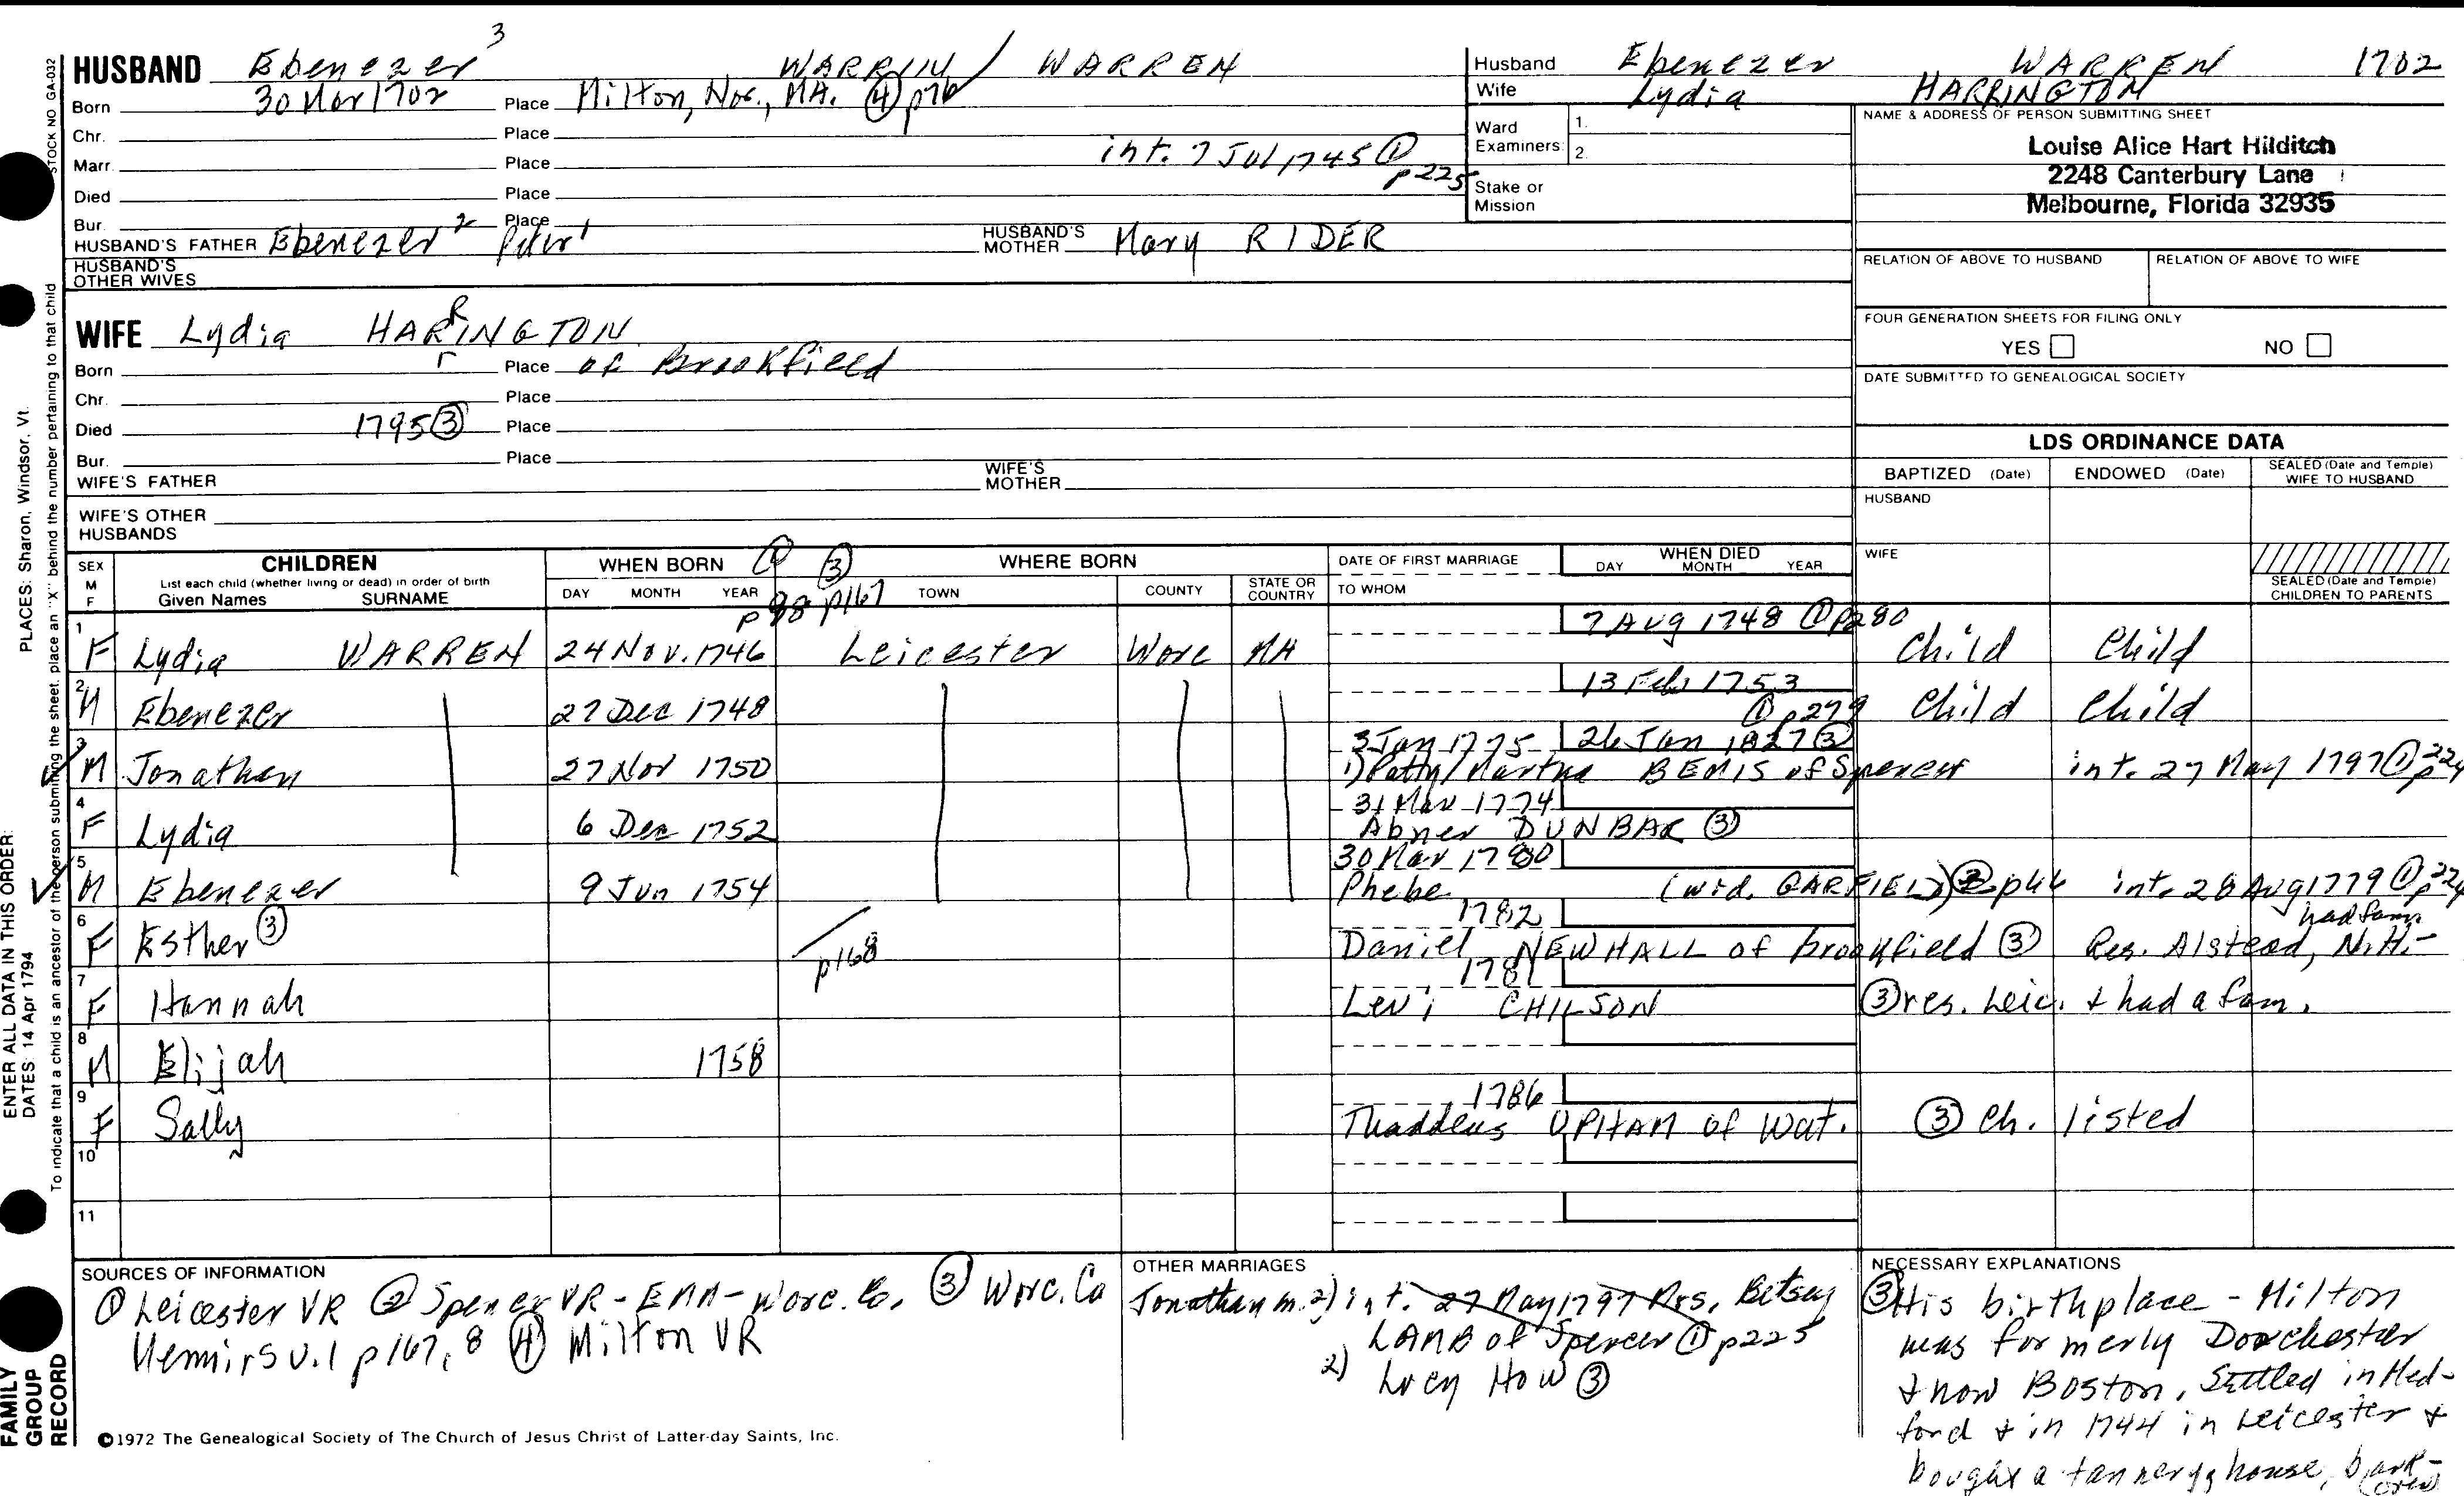 HUSBAND Ebenezer 3 WARRIN / WARREN
Born 30 Mar 1702 Place Milton, Nor., MA. (4) p76
Chr. Place
Marr. Place int. 7 Jul 1745 (1) p225
Died Place
Bur. Place
HUSBAND'S FATHER Ebenezer 2 Peter 1 HUSBAND'S MOTHER Mary RIDER
HUSBAND'S OTHER WIVES
WIFE Lydia HARRINGTON
Born Place of Brookfield
Chr. Place
Died 1795 (3) Place
Bur. Place
WIFE'S FATHER WIFE'S MOTHER
WIFE'S OTHER HUSBANDS
Husband Ebenezer WARREN 1702
Wife Lydia HARRINGTON
Ward Examiners: 1. 2.
Stake or Mission
NAME & ADDRESS OF PERSON SUBMITTING SHEET
Louise Alice Hart Hilditch
2248 Canterbury Lane
Melbourne, Florida 32935
RELATION OF ABOVE TO HUSBAND RELATION OF ABOVE TO WIFE
FOUR GENERATION SHEETS FOR FILING ONLY
YES NO
DATE SUBMITTED TO GENEALOGICAL SOCIETY
LDS ORDINANCE DATA
BAPTIZED (Date) ENDOWED (Date) SEALED (Date and Temple) WIFE TO HUSBAND
HUSBAND
WIFE
SEALED (Date and Temple) CHILDREN TO PARENTS
SEX M F CHILDREN WHEN BORN (1) (3) WHERE BORN DATE OF FIRST MARRIAGE WHEN DIED
List each child (whether living or dead) in order of birth
Given Names SURNAME DAY MONTH YEAR p98 p167 TOWN COUNTY STATE OR COUNTRY TO WHOM DAY MONTH YEAR
7 Aug 1748 (1) p280
1 F Lydia WARREN 24 Nov. 1746 Leicester Worc MA Child Child
13 Feb 1753
2 M Ebenezer 27 Dec 1748 (1) p279 Child Child
3 Jan 1775 26 Jan 1827 (3)
3 M Jonathan 27 Nov 1750 1) Patty/Martha BEMIS of Spencer int. 27 May 1797 (1) p224
31 Mar 1774
4 F Lydia 6 Dec 1752 Abner DUNBAR (3)
30 Mar 1780
5 M Ebenezer 9 Jun 1754 Phebe (wid. GARFIELD) (2) p46 int. 28 Aug 1779 (1) p224
1782 had fam.
6 F Esther (3) p168 Daniel NEWHALL of Brookfield (3) Res. Alstead, N.H. -
1781
7 F Hannah Levi CHILSON (3) res. Leic. & had a fam.
8 M Elijah 1758
1786
9 F Sally Thaddeus UPHAM of Wat. (3) Ch. listed
10
11
SOURCES OF INFORMATION
(1) Leicester VR (2) Spencer VR - EAA - Worc. Co. (3) Worc. Co
Memirs v.1 p167, 8 (4) Milton VR
OTHER MARRIAGES
Jonathan m. 2) int. 27 May 1797 Mrs. Betsey
LAMB of Spencer (1) p225
2) Lucy HOW (3)
NECESSARY EXPLANATIONS
(3) His birthplace - Milton
was formerly Dorchester
& now Boston, Settled in Med-
ford & in 1744 in Leicester &
bought a tannery, house, bark-
©1972 The Genealogical Society of The Church of Jesus Christ of Latter-day Saints, Inc.
FAMILY GROUP RECORD
ENTER ALL DATA IN THIS ORDER:
DATES: 14 Apr 1794 PLACES: Sharon, Windsor, Vt.
To indicate that a child is an ancestor of the person submitting the sheet, place an "X" behind the number pertaining to that child
STOCK NO. GA-032